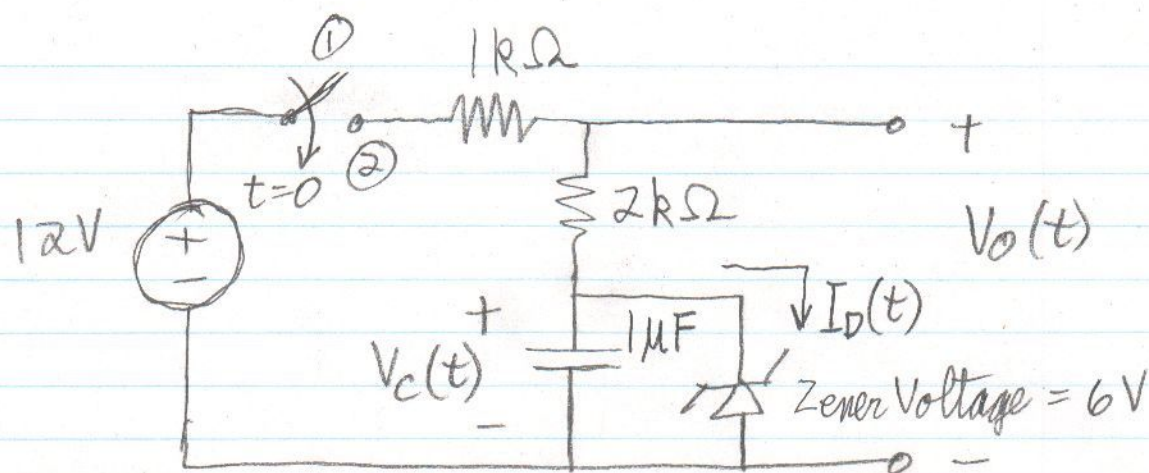 ①
1kΩ
t=0
②
+
12V
+
−
2kΩ
V₀(t)
+
1μF
I_D(t)
V_C(t)
−
Zener Voltage = 6V
−